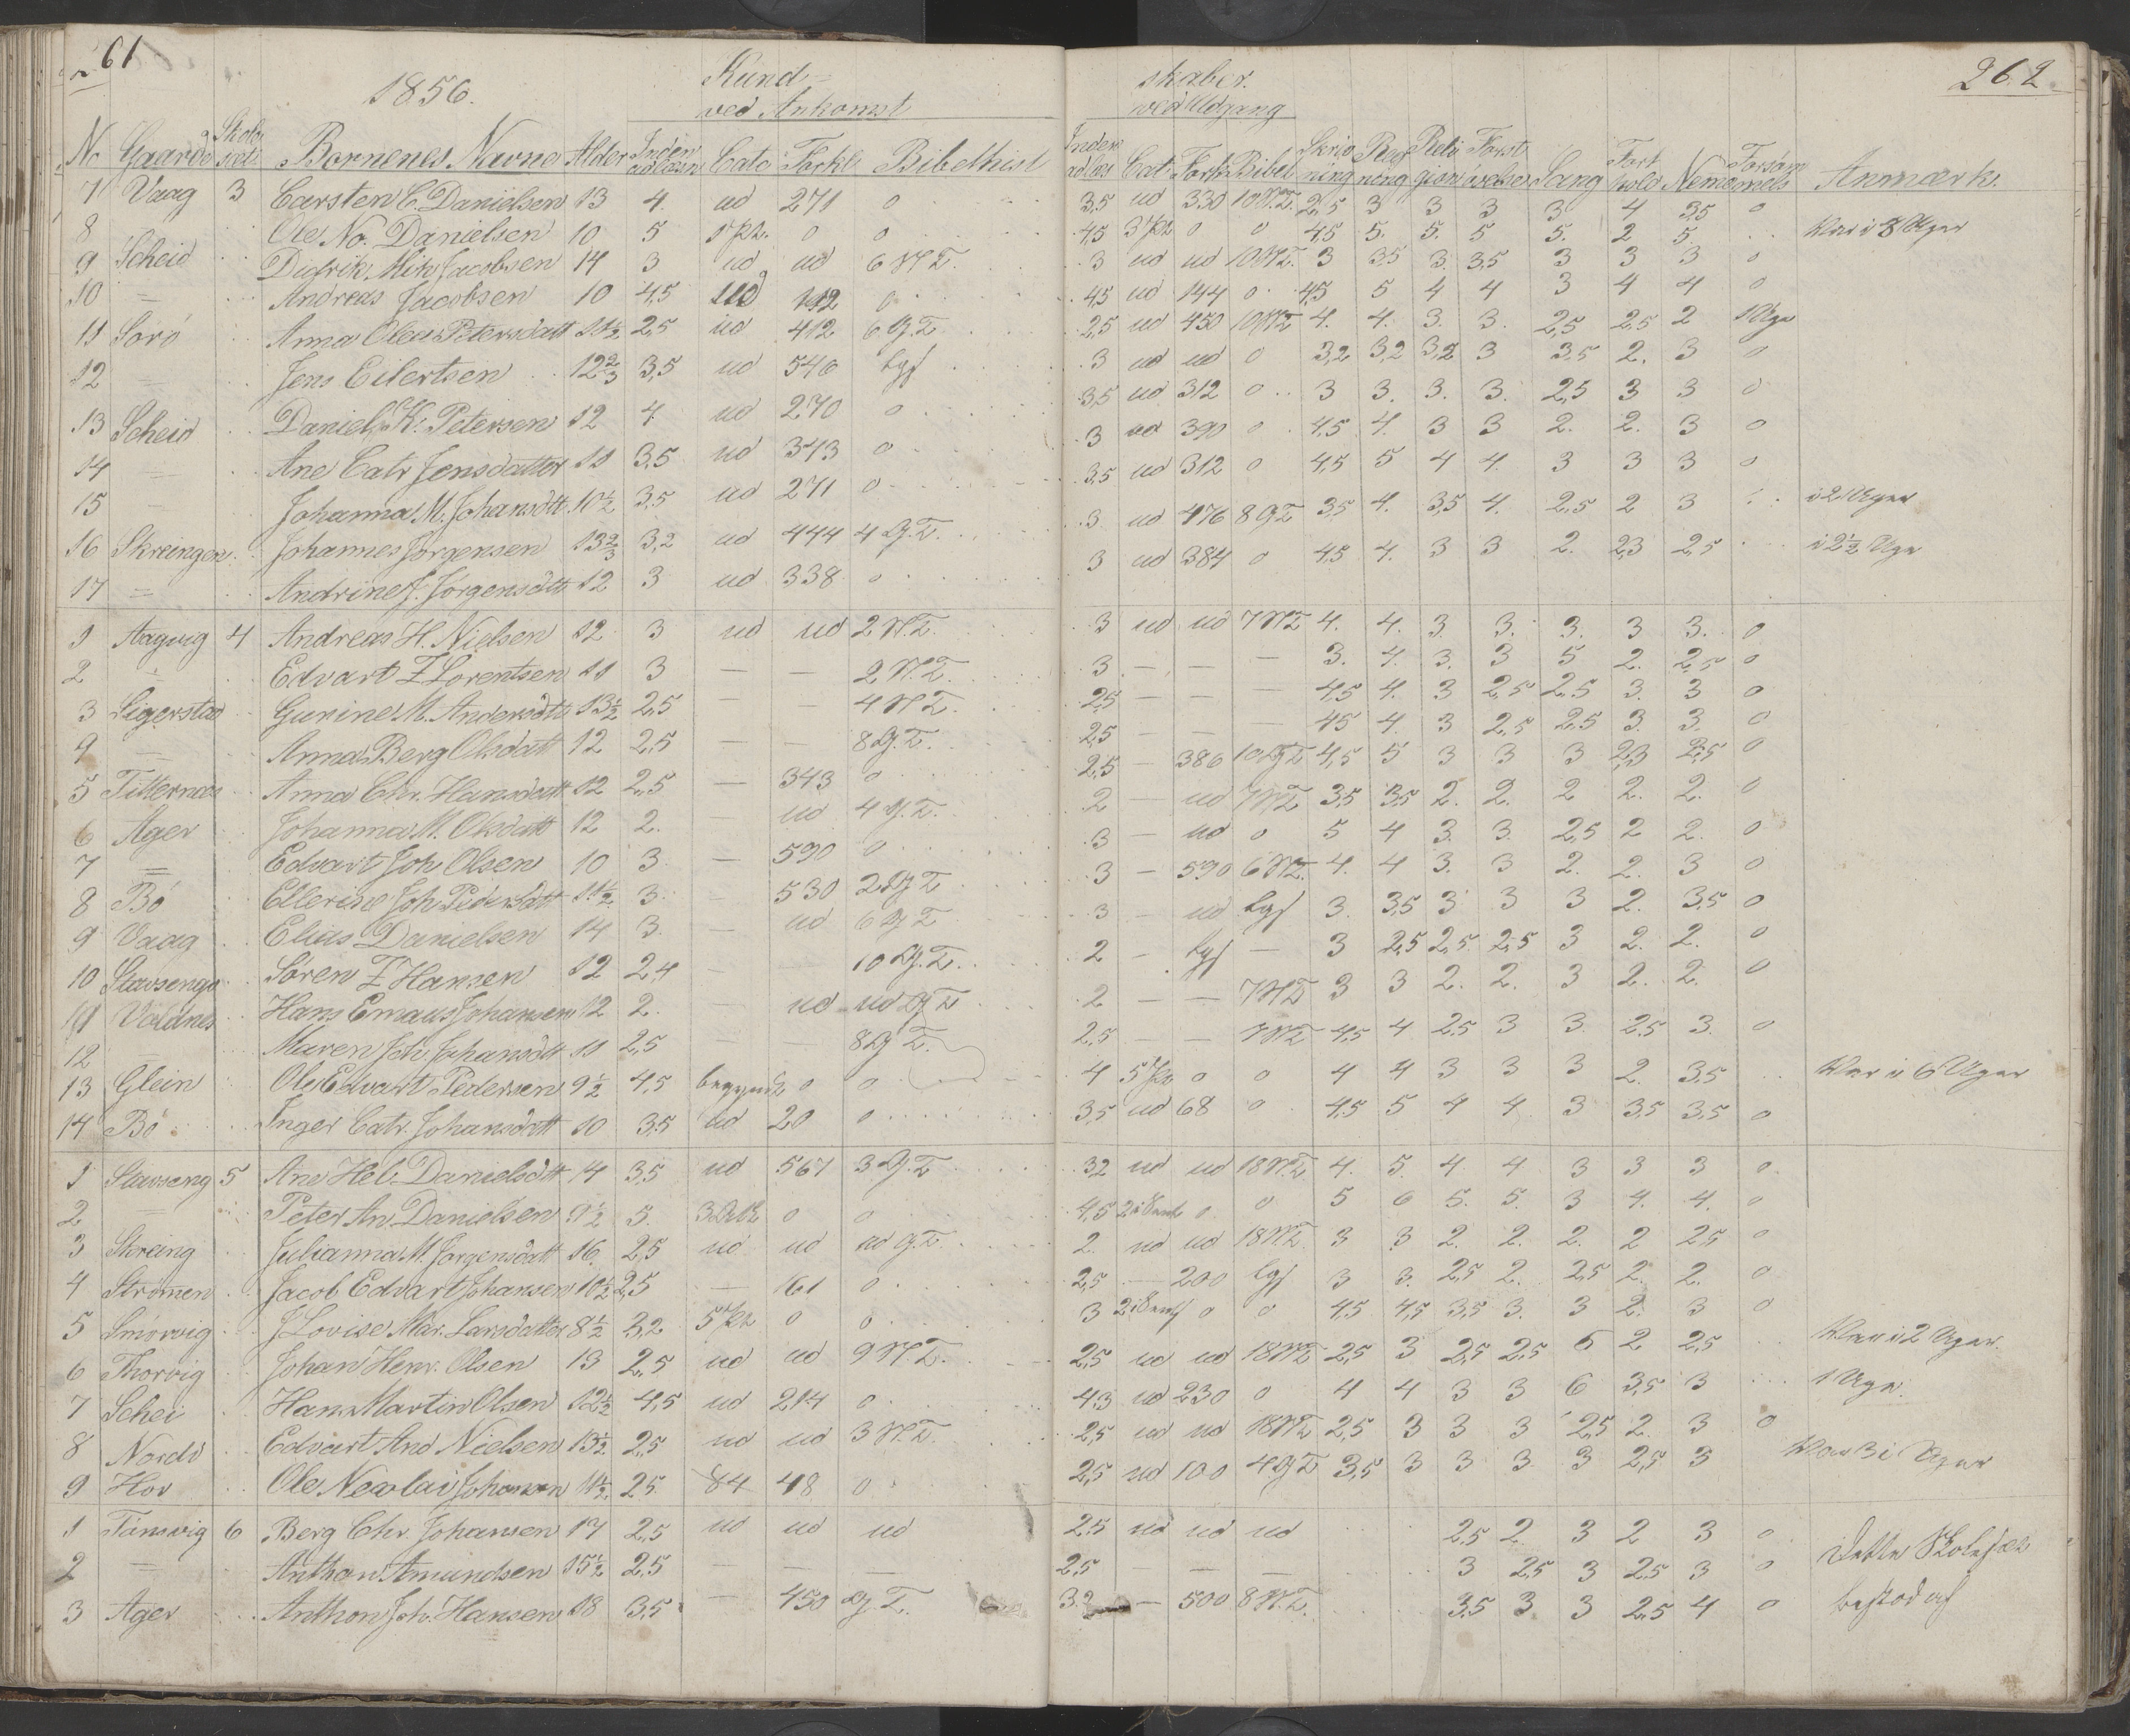 261
1856.
Kund-
ved Ankomst
No Gaarde Skole sæt Børnenes Navne Alder Inden adlæsn Cate Forkl Bibelhist
7 Vaag 3 Carsten C. Danielsen 13 4. ud 271 0
8 Ole No. Danielsen 10 5 1 Pt. 0 0
9 Scheid Didrik Mik Jacobsen 14 3 ud ud 6 N.T.
10 — Andreas Jacobsen 10 4,5 ud 112 0
11 Sorö Anna Olea Petersdatt 11½ 2,5 ud 412 6 G.T.
12 — Jens Eilertsen 12⅔ 3,5 ud 546 bgf
13 Scheid Daniel K. Petersen 12 4 ud 270 0
14 — Ane Catr Jensdatter 11 3,5 ud 313 0
15 — Johanna M. Johansdtt 10½ 3,5 ud 271 0
16 Skreingen Johannes Jörgensen 13⅔ 3,2 ud 444 4 G.T.
17 = Andrine J. Jörgensdtt 12 3 ud 338 0
1 Aagvig 4 Andreas H. Nielsen 12 3 ud ud 2 N.T.
2 Edvart Z Lorentsen 11 3 — — 2 N.T.
3 Sigerstad Gurine M. Andersdtt 13½ 2,5 — — 4 N.T.
4 — Anna Berg Olsdatt 12 2,5 — — 8 G.T.
5 Titternæs Anna Chr. Hansdatt 12 2,5 — 343 0
6 Ager Johanna M. Olsdatt 12 2. — ud 4 G.T.
7 = Edvart Joh Olsen 10 3 — 590 0
8 Bö Ellerine Joh Pedersdatt 11½ 3. — 530 2 G.T.
9 Vaag Elias Danielsen 14 3. — ud 6 G.T.
10 Stavsenge Sören Z Hansen 12 2,4 — 10 G.T.
11 Valdnes Hans Emaus Johansen 12 2. — ud ud G.T.
12 — Maren Joh. Johansdtt 11 2,5 — — 8 G.T.
13 Glein Ole Edvart Pedersen 9½ 4,5 begyndt 0 0
14 Bö Inger Catr. Johansdatt 10 3,5 ud 20 0
1 Stavseng 5 Ane Hel. Danielsdtt 14 3,5 ud 567 3 G.T.
2 — Peter An. Danielsen 9½ 5. 0 0
3 Storeing Julianna M. Jörgensdatt 16 2,5 ud ud ud G.T.
4 Strömen Jacob Edvart Johansen 10½ 2,5 — 161 0
5 Smörvig J Lovise Mar. Larsdatter 8½ 3,2 5 Pt 0 0
6 Thorvig Johan Henr. Olsen 13 2,5 ud ud 9 N.T.
7 Schei Hans Martin Olsen 12½ 4,5 ud 214 0
8 Nordö Edvart And Nielsen 13½ 2,5 ud ud 3 N.T.
9 Hov Ole Nicolai Johansen 11½ 2,5 84 48 0
1 Tönsvig 6 Berg Chr. Johansen 17 2,5 ud ud ud
2 — Anthon Amundsen 15½ 2,5 — — —
3 Ager Anthon Joh. Hansen 18 3,5 — 450 G.T.
262
skaber.
ved Udgang
Inden adlæs Cat Fork Bibel Skriv ning Reg ning Reli gion Forst andse Sang Fort hold Nemme Forsöm mels Anmærk.
3,5 ud 330 10 N.T. 2,5 3 3 3 3 4 3,5 0
4,5 3 Pt 0 0 4,5 5. 5. 5 5. 2 5. Var i 8 Uger
3 ud ud 10 N.T. 3 3,5 3. 3,5 3 3 3 0
4,5 ud 144 0 4,5 5 4 4 3 4 4 0
2,5 ud 450 10 N.T. 4. 4. 3. 3. 2,5 2,5 2 1 Uge
3 ud ud 0 3,2 3,2 3,2 3 3,5 2. 3 0
3,5 ud 312 0 3 3. 3. 3. 2,5 3 3 0
3 ud 390 0 4,5 4. 3 3 2. 2. 3 0
3,5 ud 312 0 4,5 5 4 4. 3 3 3 0
3 ud 476 8 G.T. 3,5 4. 3,5 4. 2,5 2 3 i 2 Uger
3 ud 384 0 4,5 4. 3 3 2. 2,3 2,5 i 2½ Uge
3 ud ud 7 N.T. 4. 4. 3. 3. 3. 3 3. 0
3 — — — 3. 4. 3. 3 5 2. 2,5 0
2,5 — — — 4,5 4. 3 2,5 2,5 3. 3 0
2,5 — — — 4,5 4. 3 2,5 2,5 3. 3. 0
2,5 — 386 10 G.T. 4,5 5 3 3 3 2,3 2,5 0
2 — ud 7 N.T. 3,5 3,5 2. 2. 2 2. 2. 0
3 — ud 0 5 4 3. 3. 2,5 2 2. 0
3 — 590 6 N.T. 4. 4 3. 3 2. 2. 3 0
3 — ud bgf 3. 3,5 3 3 3 2. 3,5 0
2 — bgf — 3 2,5 2,5 2,5 3 2. 2. 0
2 — — 7 N.T. 3 3 2. 2. 3 2. 2. 0
2,5 — — 7 N.T. 4,5 4 2,5 3 3. 2,5 3. 0
4 5 Pt 0 0 4 4 3 3 3 2. 3,5 Var i 6 Uger
3,5 ud 68 0 4,5 5 4 4 3 3,5 3,5 0
3,2 ud ud 18 N.T. 4. 5. 4. 4 3 3 3 0
4,5 0 0 5 6 5. 5. 3 4. 4. 0
2. ud ud 18 N.T. 3 3 2. 2. 2. 2 2,5 0
2,5 — 200 bgf 3 3. 2,5 2. 2,5 2. 2. 0
3 0 0 4,5 4,5 3,5 3. 3 2. 3 0
2,5 ud ud 18 N.T. 2,5 3 2,5 2,5 6 2 2,5 Var i 2 Uger.
4,3 ud 230 0 4 4 3 3 6 3,5 3 1 Uge.
2,5 ud ud 18 N.T. 2,5 3 3 3 2,5 2. 3 0
2,5 ud 100 4 G.T. 3,5 3 3 3 3 2,5 3 Var 3 i Uger
2,5 ud ud ud 2,5 2. 3 2 3 0 Dette Skolesæt
2,5 — — — 3 2,5 3 2,5 3 0
3,2 — 500 8 N.T. 3,5 3. 3 2,5 4 0 bestod af